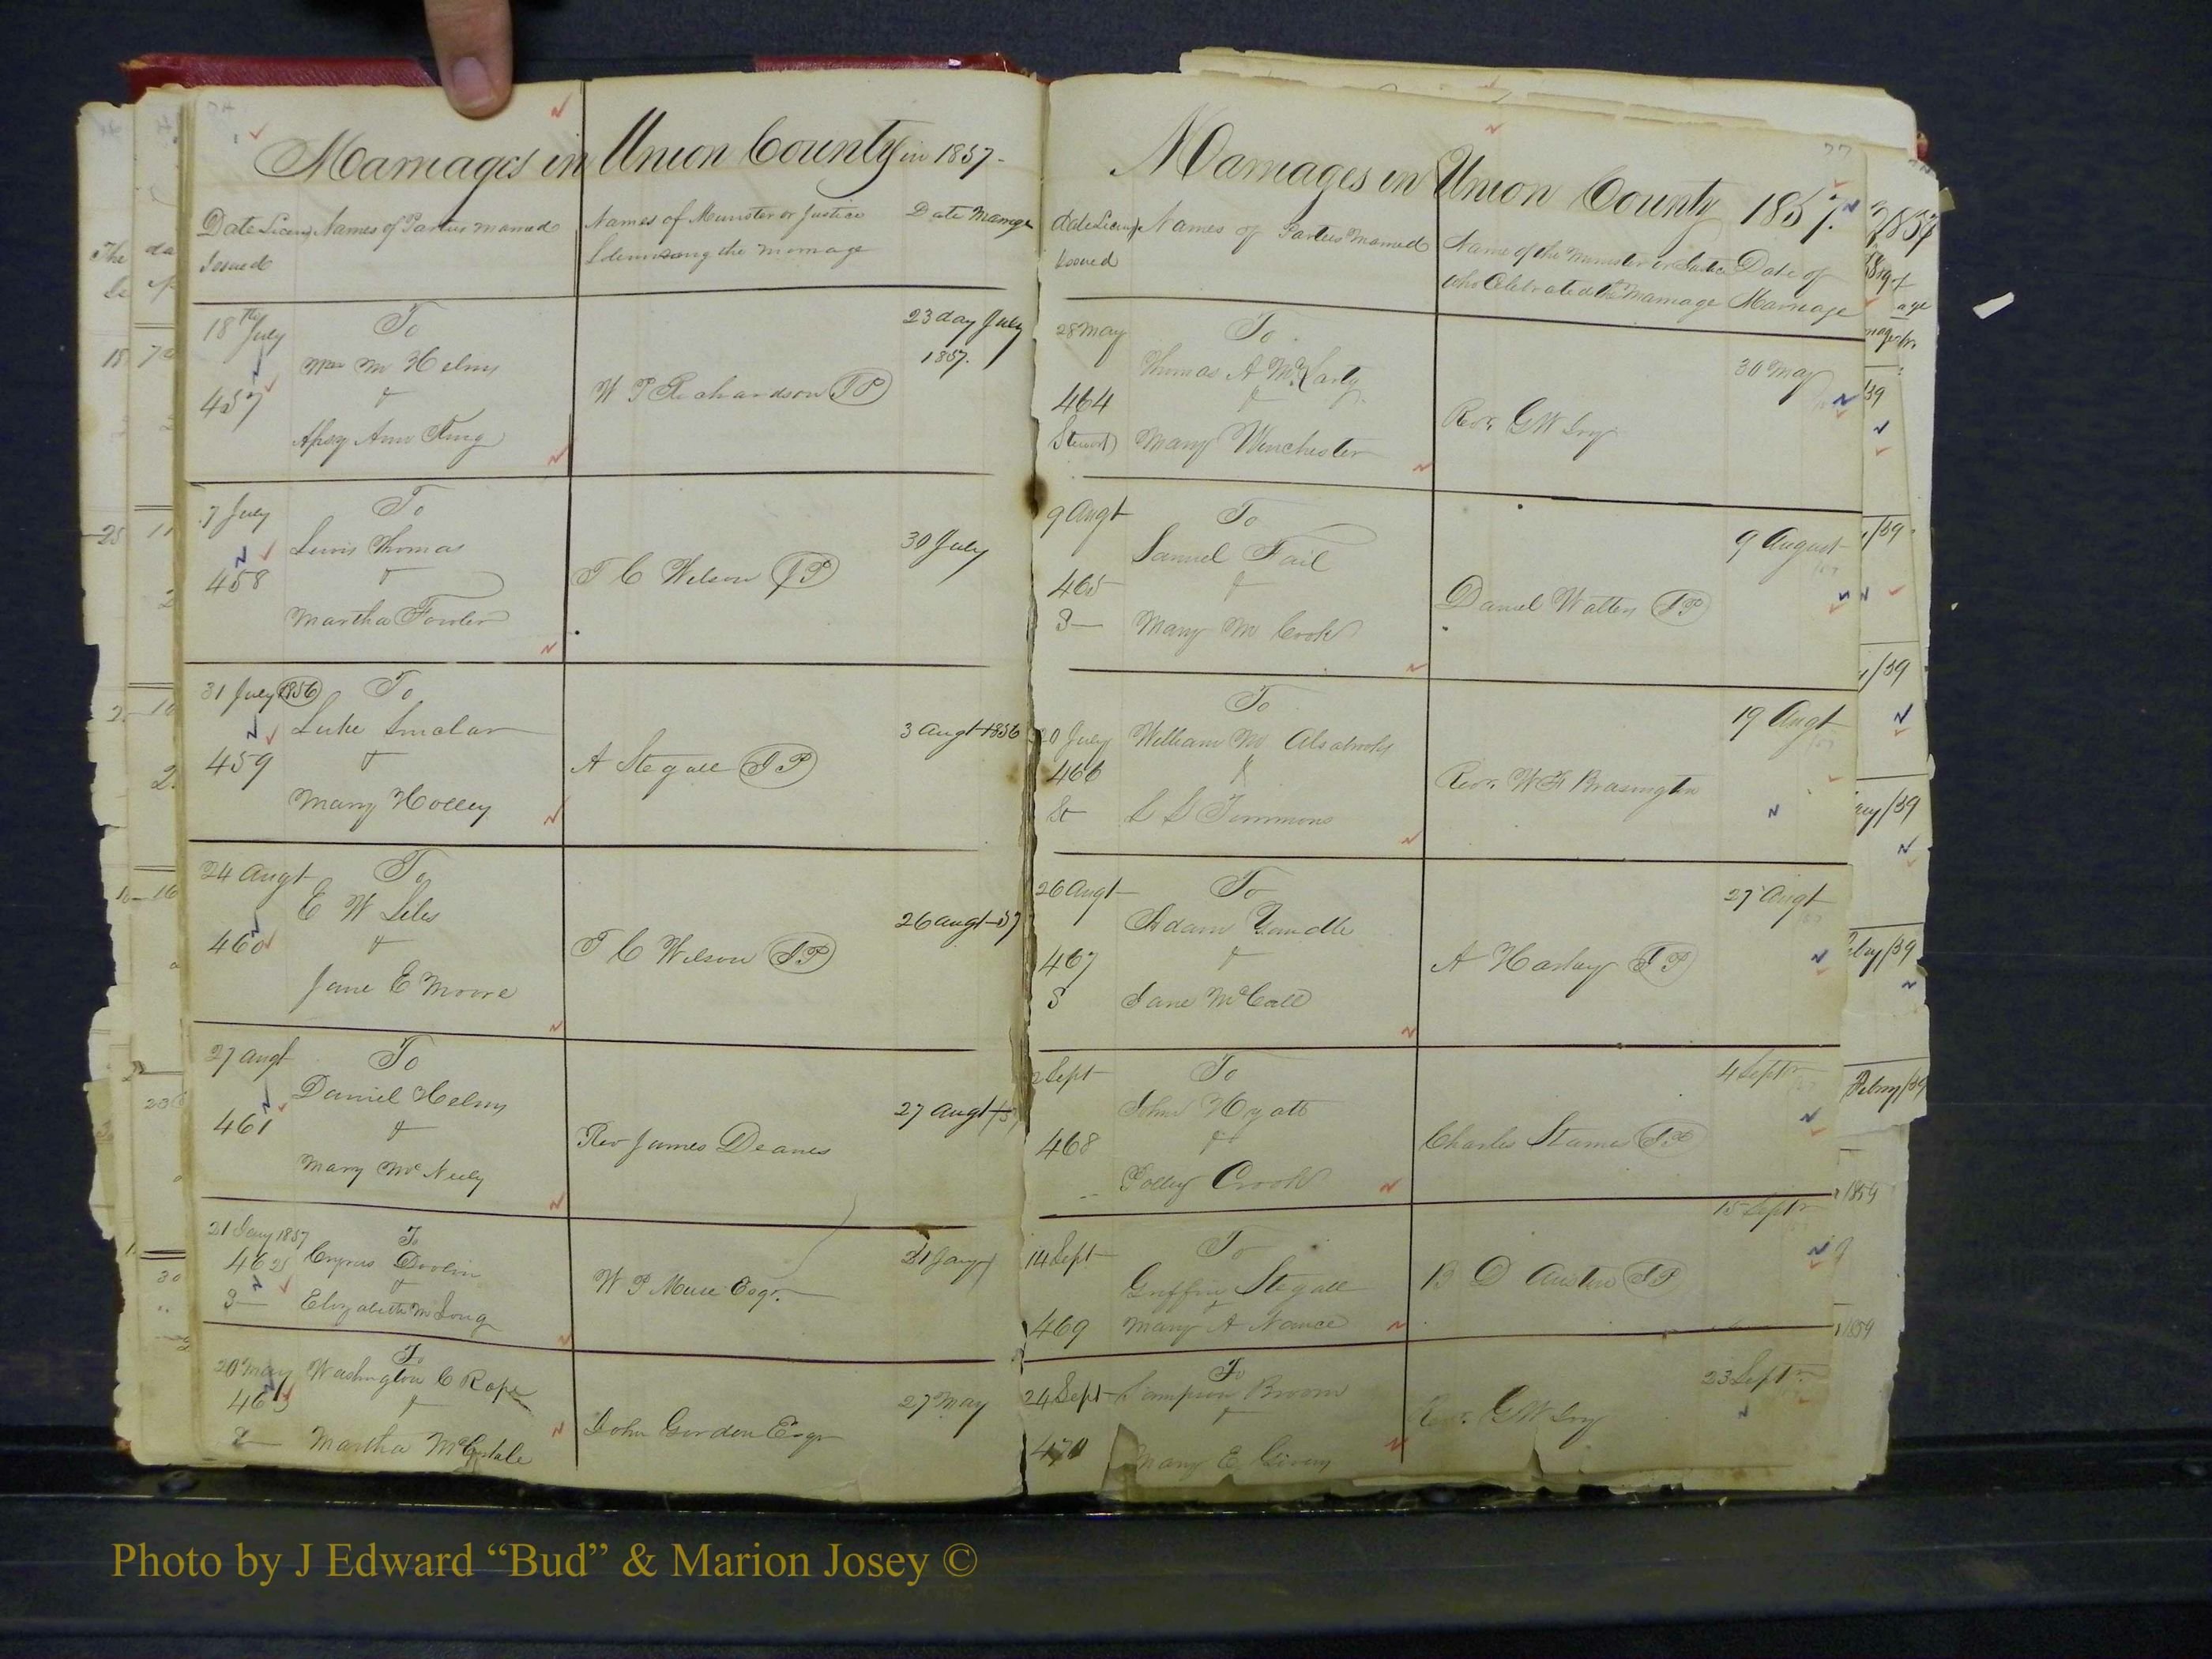 Marriages in Union County in 1857.
Date Licens Names of Parties married
Issued
Names of Minister or Justice
Solemnizing the marriage
Date Marriage
18th July
To
Wm M Helms
457
&
Apsey Ann King
W P Richardson JP
23 day July
1857.
7 July
To
Lewis Thomas
458
&
Martha Fowler
T C Wilson JP
30 July
31 July 1856
To
Luke Sinclar
459
&
Mary Holley
A Stegall JP
3 Augt 1856
24 Augt
To
E W Liles
460
&
Jane E Moore
T C Wilson JP
26 Augt 57
27 Augt
To
Daniel Helms
461
&
Mary McNeely
Rev James Deanes
27 Augt
21 Jany 1857
To
462 Cyrus
&
Elizabeth M Long
W P Muse Esqr.
21 Jany
20 May
To
Washington C Rape
463
&
Martha
John Gordon Esqr
27 May
Marriages in Union County 1857.
Date Licens Names of Parties married
Issued
Name of the Minister or Justice
who Celebrated the Marriage
Date of
Marriage
28 May
To
Thomas A McLarty
464
&
Stewart Mary Winchester
Rev. G W Ivy
30 May
9 Augt
To
Samuel Fail
465
&
S Mary M Cook
Daniel Watters JP
9 August
To
20 July William M Alsabrooks
466
&
St S S Timmons
Rev. W F Brasington
19 Augt
26 Augt
To
Adam Yandle
467
&
S Jane McCall
A Harkey JP
27 Augt
2 Sept
To
John Hyatt
468
&
Polley Crook
Charles Starnes JP
4 Septr
14 Sept
To
Griffin Stegall
&
469 Mary A Nance
B D Austin JP
15 Septr
24 Sept
To
Sampson Broom
&
470
Mary E Givens
Rev. G W Ivy
23 Septr
Photo by J Edward “Bud” & Marion Josey ©